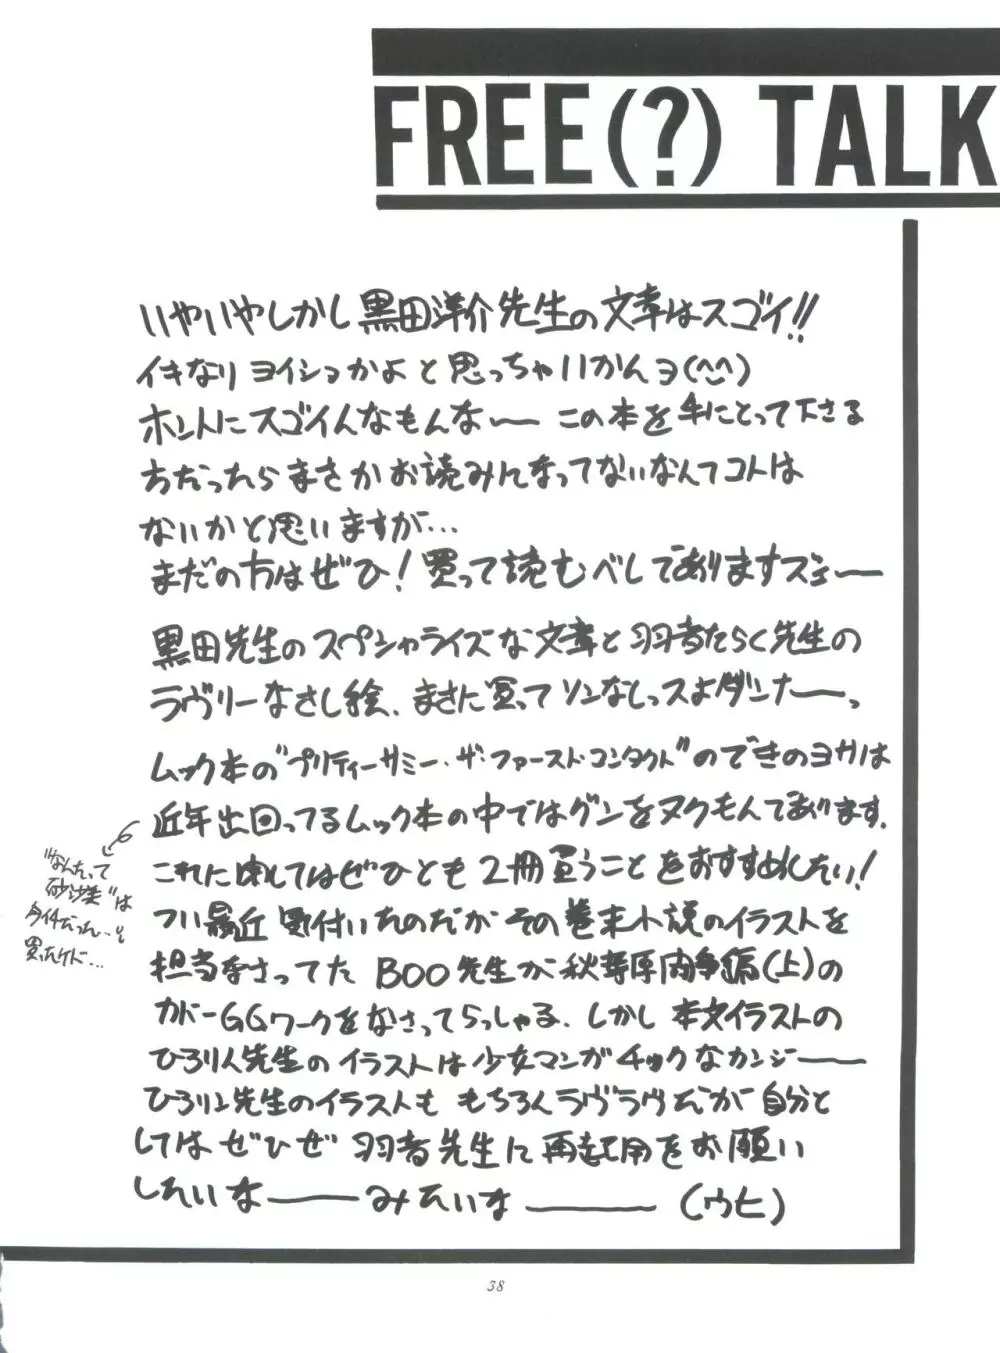 FREE(?) TALK
いやいやしかし黒田洋介先生の文章はスゴイ!!
イキなりヨイショかよと思っちゃいかんヨ(^^)
ホントにスゴイんなもんなー この本を手にとって下さる
方だったらまさかお読みんなってないなんてコトは
ないかと思いますが…
まだの方はぜひ!買って読むベしでありますズェー
黒田先生のスペシャライズな文章と羽音たらく先生の
ラヴリーなさし絵、まさに買ってソンなしっスよダンナーっ
ムック本の"プリティーサミー・ザ・ファースト・コンタクト"のできのヨサは
近年出回ってるムック本の中ではグンをヌクもんであります.
これに関してはぜひとも2冊買うことをおすすめしたい!
つい最近買付いたのだがその巻末小説のイラストを
担当なさってたBOO先生が秋葉原内争編(上)の
カバーCGワークをなさってらっしゃる.しかし本文イラストの
ひろりん先生のイラストは少女マンガチックなカンジー
ひろリン先生のイラストももちろんラヴラヴだが自分と
してはぜひぜひ羽音先生に再起用をお願い
したいなーみたいなー(ウヒ)
"なんたって
砂沙美"は
買ったケド…
38